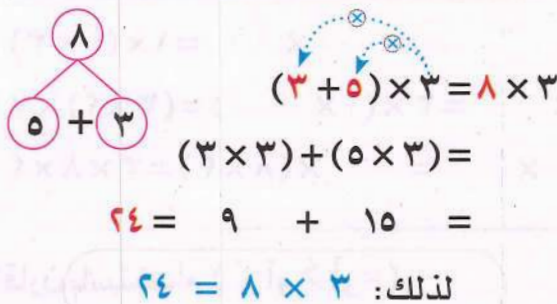 ٨
٣ + ٥
٣ × ٨ = ٣ × (٥ + ٣)
= (٣ × ٥) + (٣ × ٣)
= ١٥ + ٩ = ٢٤
لذلك: ٣ × ٨ = ٢٤